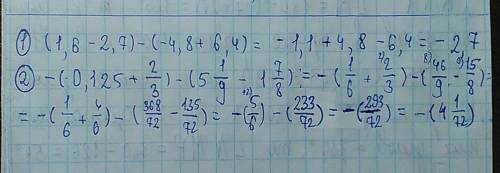 ① (1,6 - 2,7) - (-4,8 + 6,4) = -1,1 + 4,8 - 6,4 = -2,7
② -(0,125 + 2/3) - (5 1/9 - 1 7/8) = -(1/6 + 2) 2/3) - (8) 46/9 - 9) 15/8) =
= -(1/6 + 4/6) - (368/72 - 135/72) = -(12) 5/6) - (233/72) = -(293/72) = -(4 1/72)